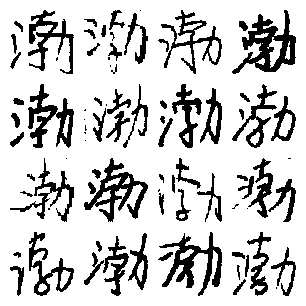 渤渤渤渤
渤渤渤渤
渤渤渤渤
渤渤渤渤